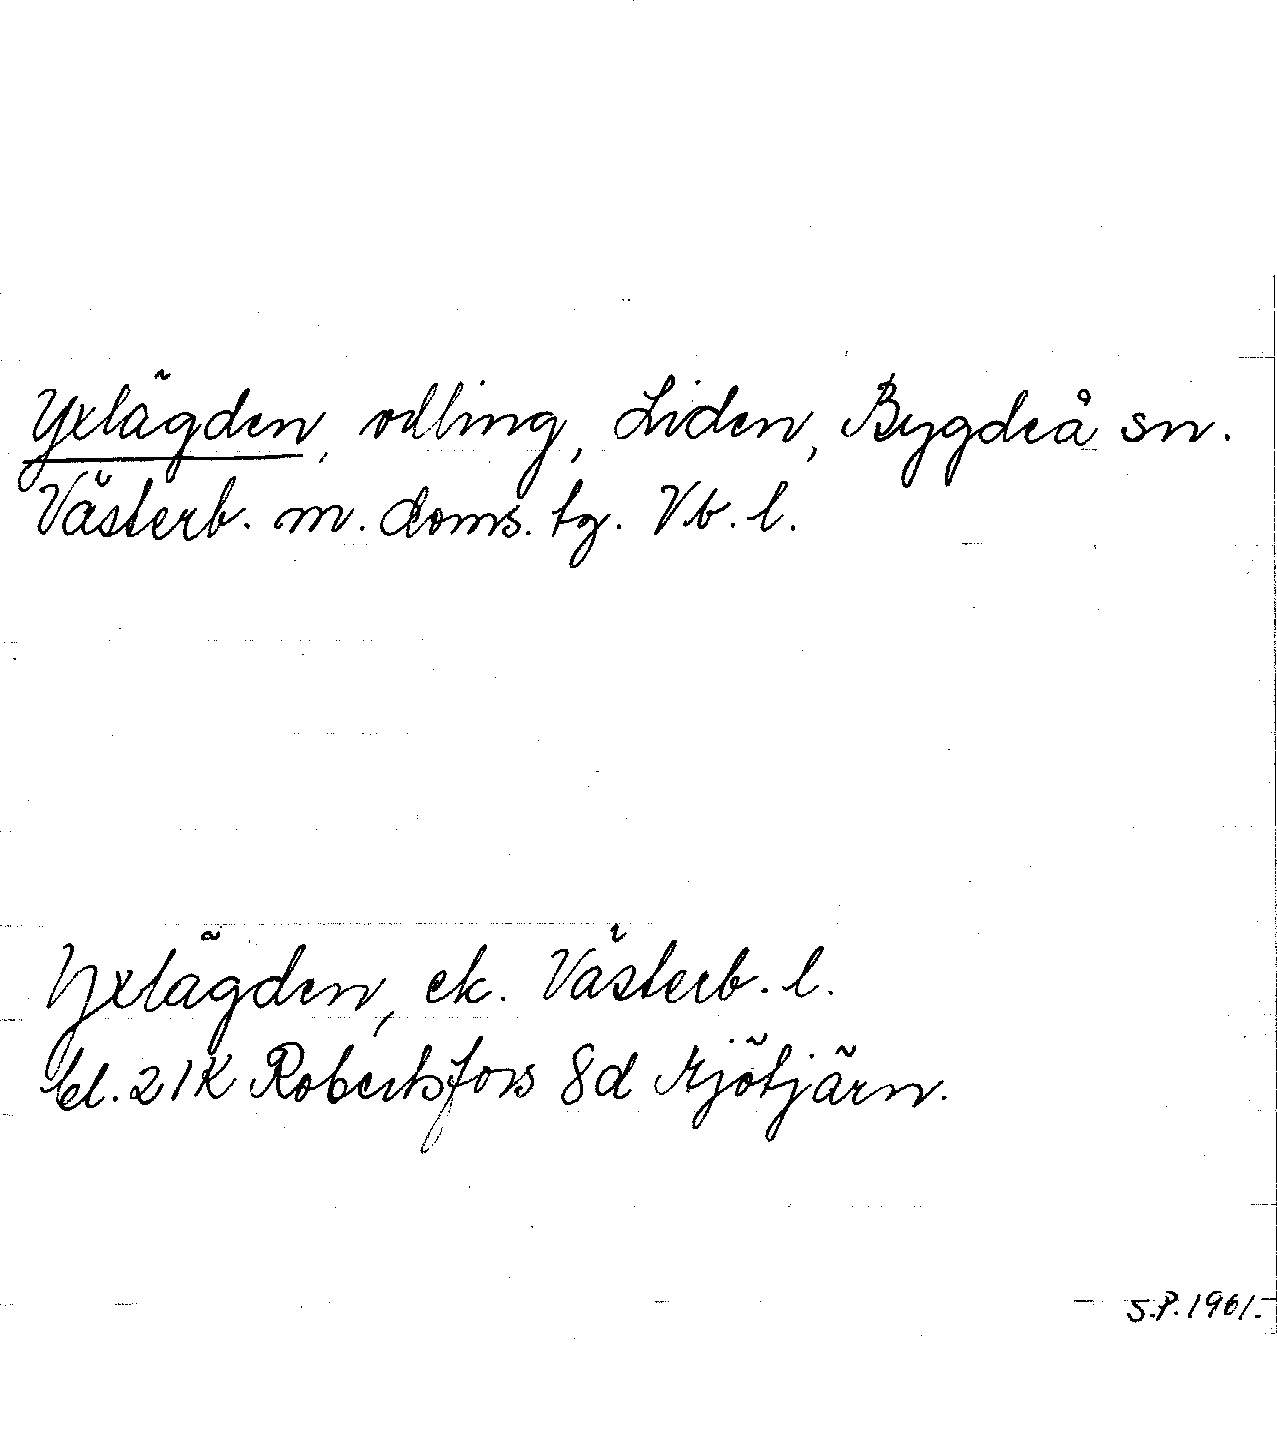 Yxlägden, odling, Liden, Bygdeå sn.
Västerb. m. doms. tg. Vb. l.
Yxlägden, ek. Västerb. l.
bl. 21K Robertsfors 8d
S.P. 1961.